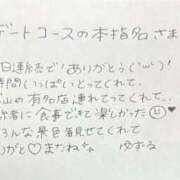 デートコースの本指名さま
日連続で!ありがとう(˙ᵕ˙)!
時間いっぱいとってくれて、
山の有名店連れてってくれて、
緒に食事できて楽しかった
ろんな景色見せてくれて
がと♡またねっ ゆずる